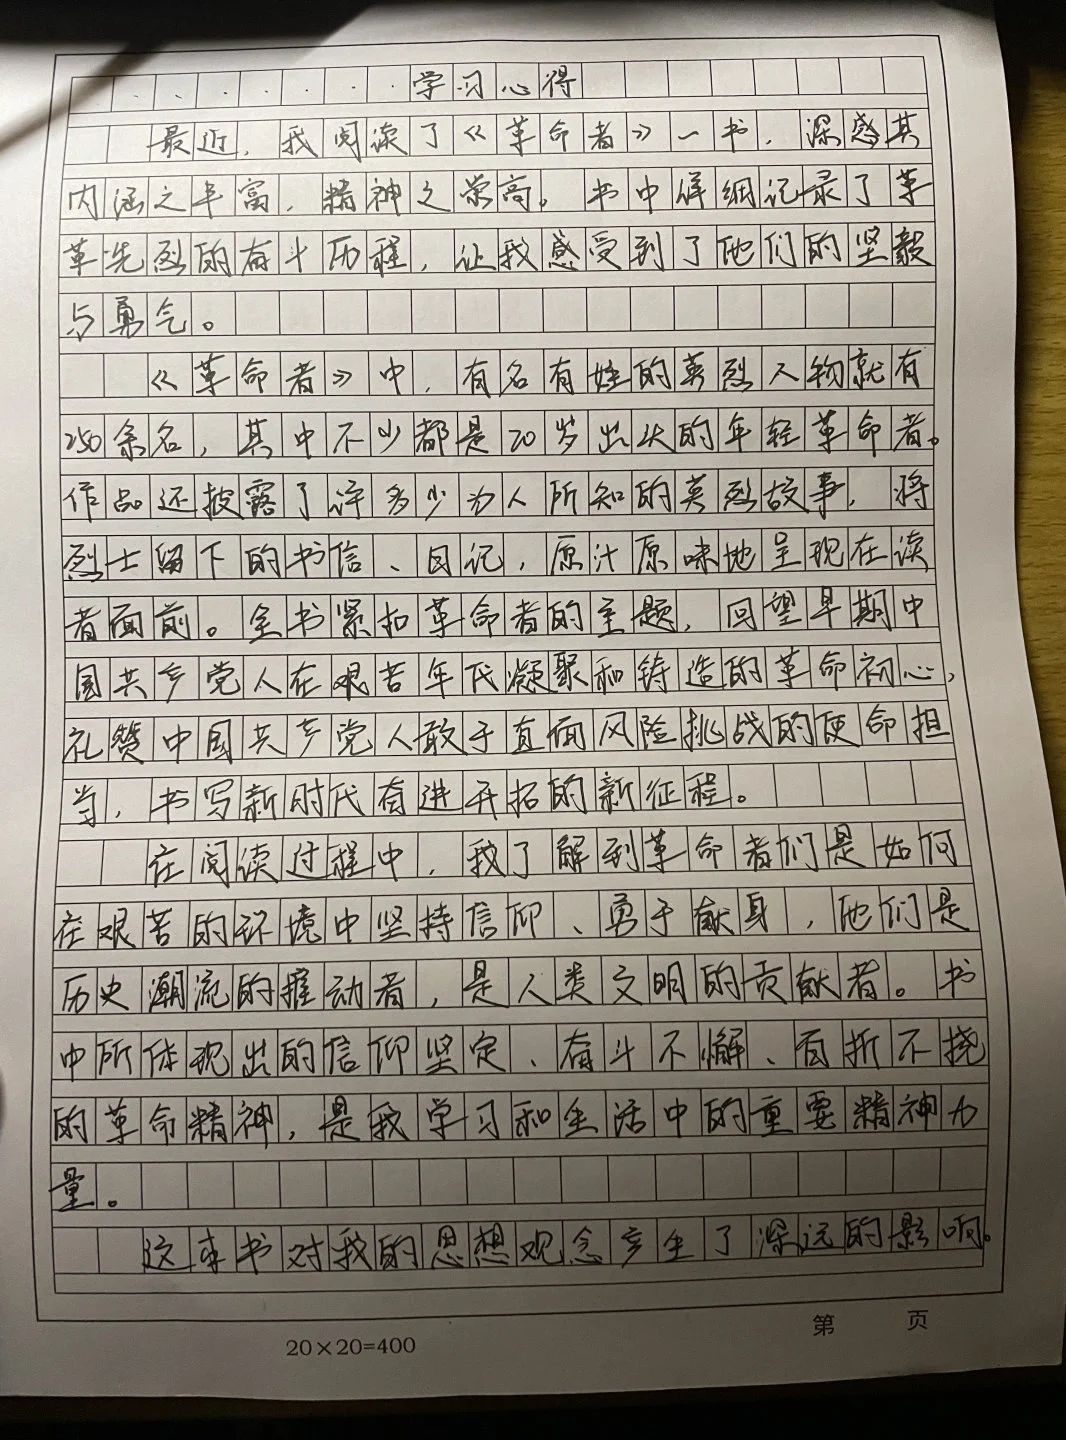 学习心得
最近，我阅读了《革命者》一书，深感其
内涵之丰富，精神之崇高。书中详细记录了革
革先烈的奋斗历程，让我感受到了他们的坚毅
与勇气。
《革命者》中，有名有姓的英烈人物就有
250余名，其中不少都是20岁出头的年轻革命者。
作品还披露了许多少为人所知的英烈故事，将
烈士留下的书信、日记，原汁原味地呈现在读
者面前。全书紧扣革命者的主题，回望早期中
国共产党人在艰苦年代凝聚和铸造的革命初心，
礼赞中国共产党人敢于直面风险挑战的使命担
当，书写新时代奋进开拓的新征程。
在阅读过程中，我了解到革命者们是如何
在艰苦的环境中坚持信仰、勇于献身，他们是
历史潮流的推动者，是人类文明的贡献者。书
中所体现出的信仰坚定、奋斗不懈、百折不挠
的革命精神，是我学习和生活中的重要精神力
量。
这本书对我的思想观念产生了深远的影响。
20×20=400
第 页